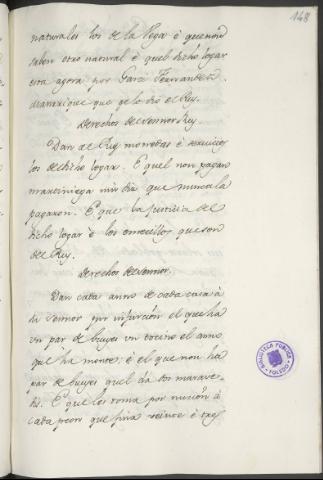 148
naturales los de la Vega: è que non
saben otro natural è quel dicho logar
esta agora por Garci Ferrandez
Manrrique que ge lo dió el Rey.
Derechos del Sennor Rey.
Dan al Rey monedas è servicios
los del dicho logar. E quel non pagan
martiniega nin dia que nunca la
pagaron. E que la Justicia del
dicho logar è los omecillos que son
del Rey.
Derechos del Sennor.
Dan cada anno de cada casa à
su Sennor por infurcion el que ha
un par de bueyes un tocino el anno
que ha monte: è el que non ha
par de bueyes quel dà dos marave-
dis. E que les toma por nuncion à
cada peon que fina veinte è tres
BIBLIOTECA PUBLICA
TOLEDO